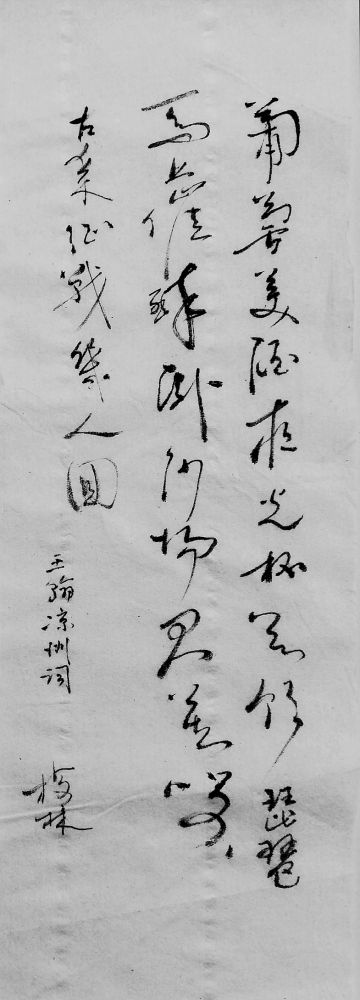 葡萄美酒夜光杯欲饮琵琶
马上催醉卧沙场君莫笑
古来征戰幾人回
王翰凉州词